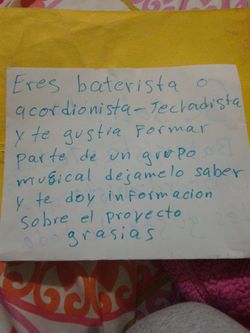 Eres baterista o
acordionista-Tecladista
y te gustia Formar
parte de un grupo
musical dejamelo saber
y te doy informacion
sobre el proyecto
grasias